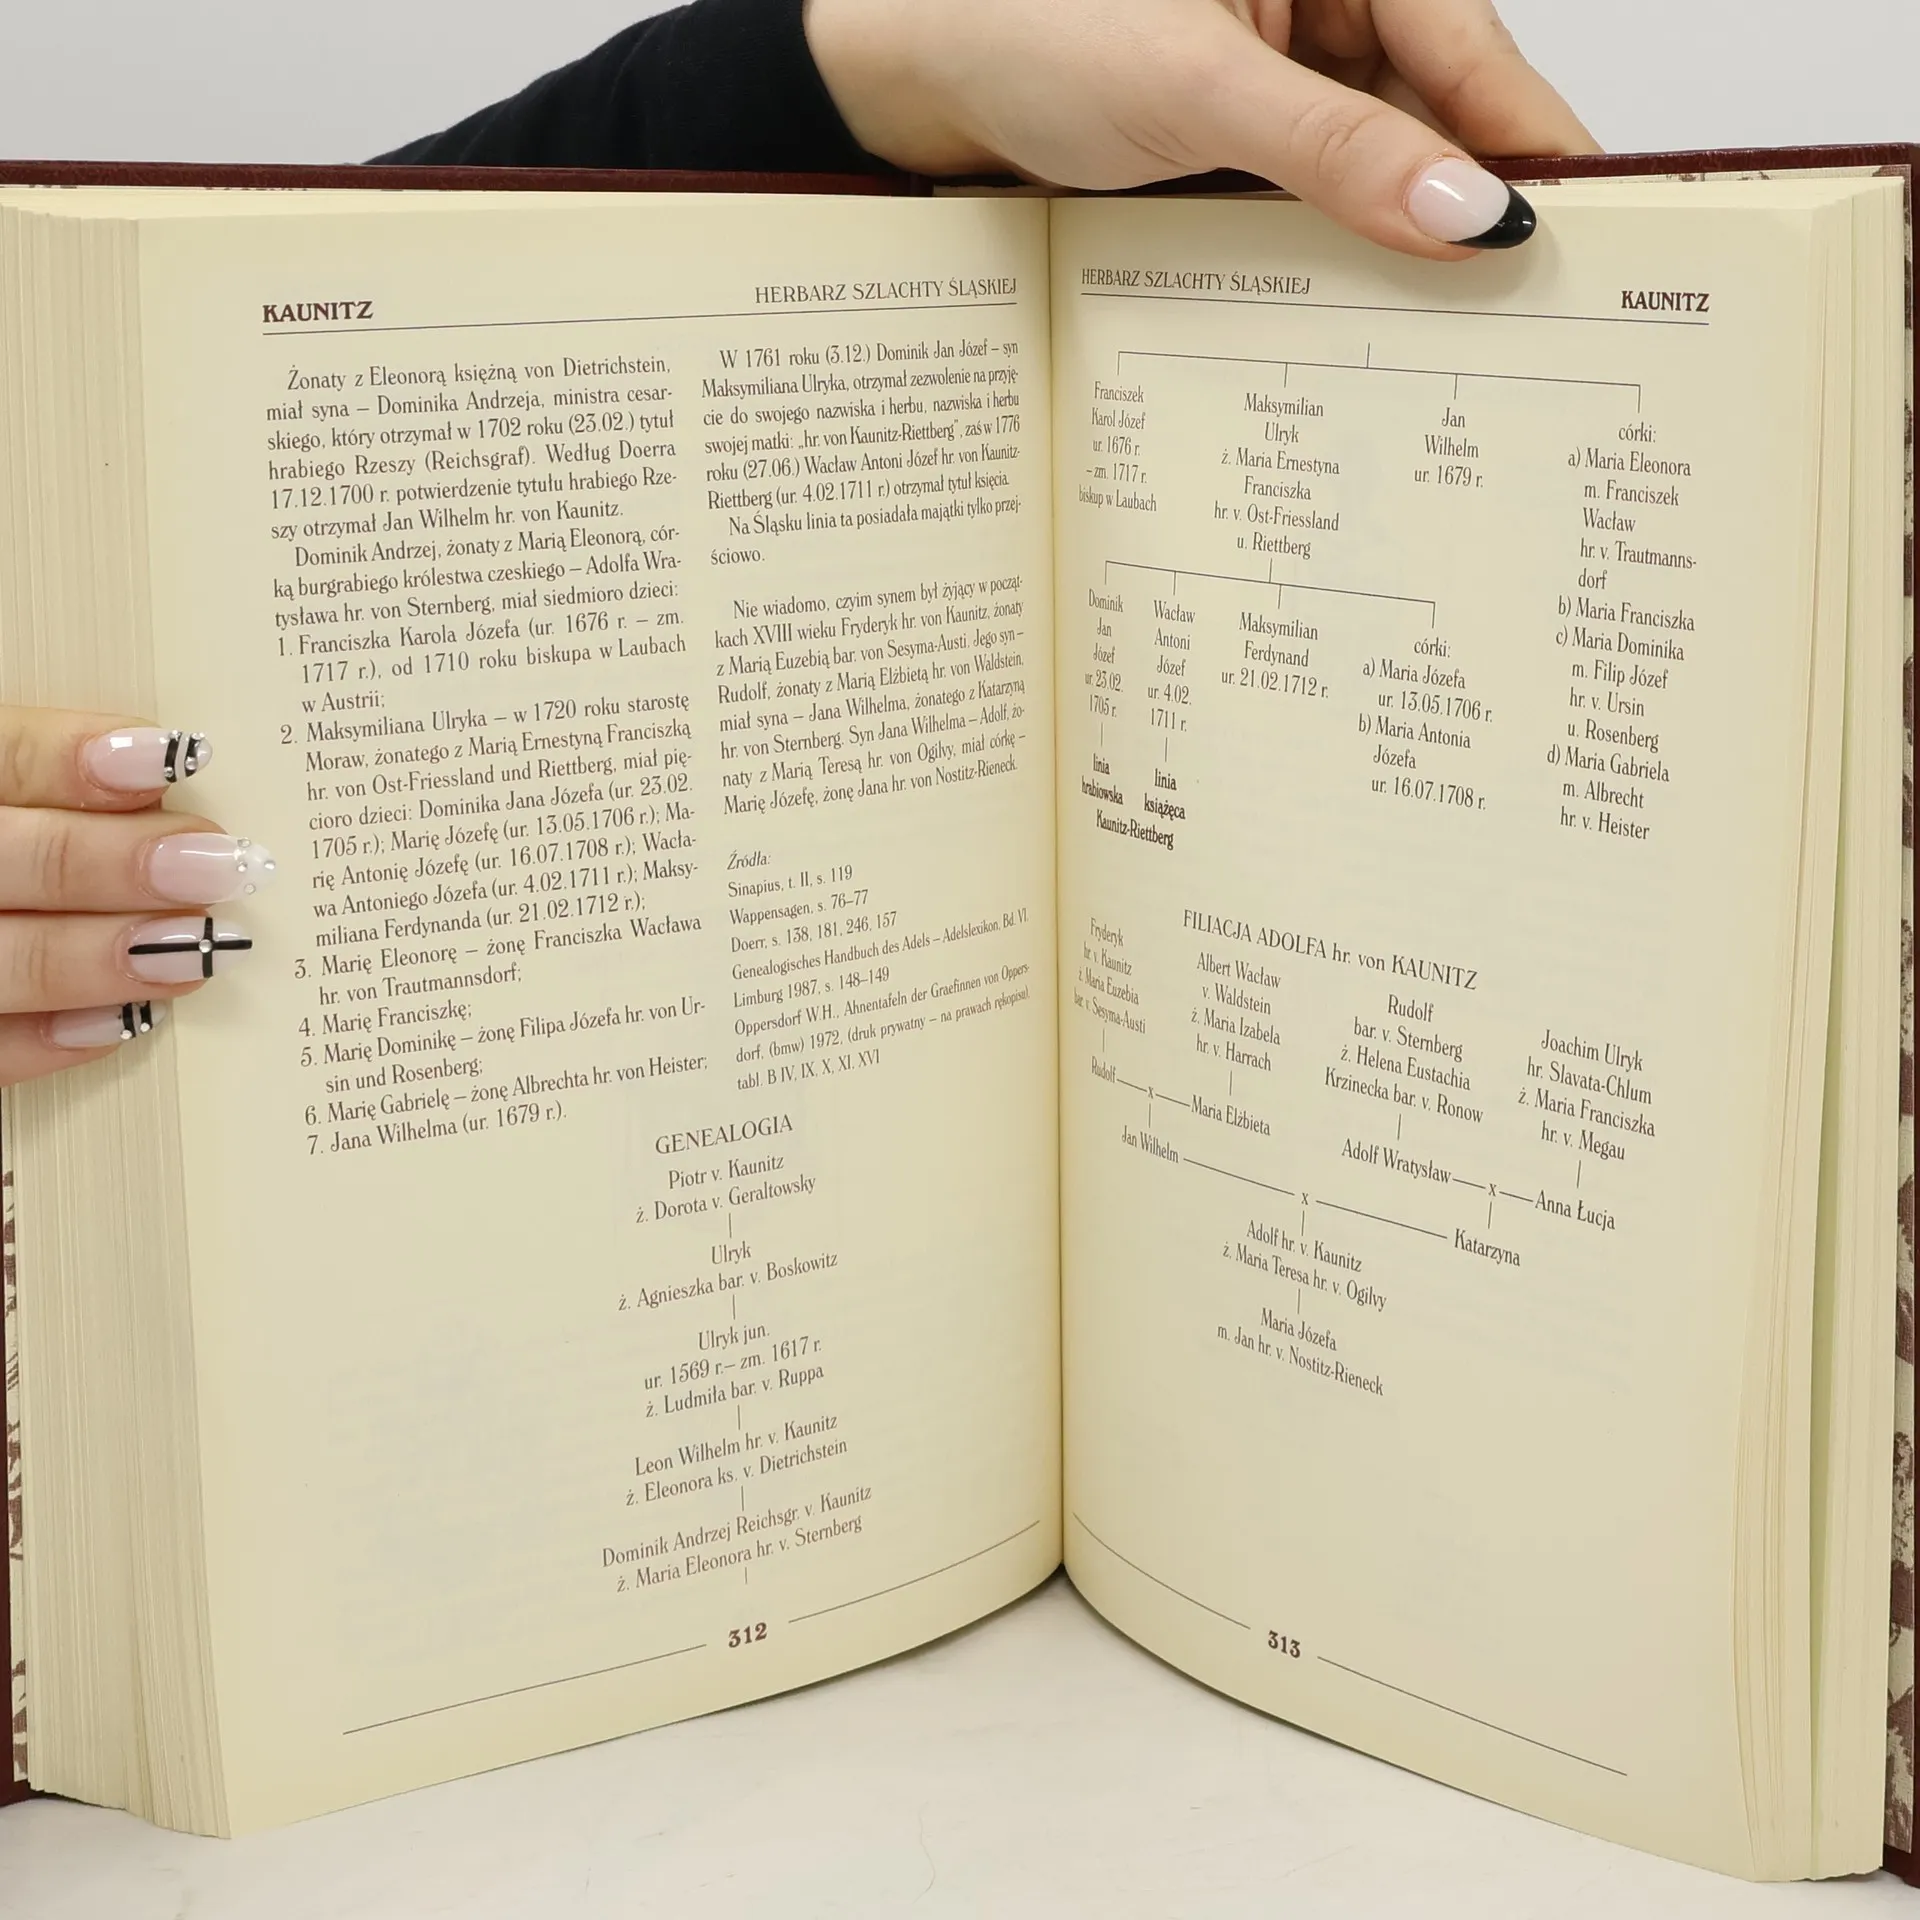 KAUNITZ
HERBARZ SZLACHTY ŚLĄSKIEJ
Żonaty z Eleonorą księżną von Dietrichstein,
miał syna – Dominika Andrzeja, ministra cesar-
skiego, który otrzymał w 1702 roku (23.02.) tytuł
hrabiego Rzeszy (Reichsgraf). Według Doerra
17.12.1700 r. potwierdzenie tytułu hrabiego Rze-
szy otrzymał Jan Wilhelm hr. von Kaunitz.
Dominik Andrzej, żonaty z Marią Eleonorą, cór-
ką burgrabiego królestwa czeskiego – Adolfa Wra-
tysława hr. von Sternberg, miał siedmioro dzieci:
1. Franciszka Karola Józefa (ur. 1676 r. – zm.
1717 r.), od 1710 roku biskupa w Laubach
w Austrii;
2. Maksymiliana Ulryka – w 1720 roku starostę
Moraw, żonatego z Marią Ernestyną Franciszką
hr. von Ost-Friessland und Riettberg, miał pię-
cioro dzieci: Dominika Jana Józefa (ur. 23.02.
1705 r.); Marię Józefę (ur. 13.05.1706 r.); Ma-
rię Antonię Józefę (ur. 16.07.1708 r.); Wacła-
wa Antoniego Józefa (ur. 4.02.1711 r.); Maksy-
miliana Ferdynanda (ur. 21.02.1712 r.);
3. Marię Eleonorę – żonę Franciszka Wacława
hr. von Trautmannsdorf;
4. Marię Franciszkę;
5. Marię Dominikę – żonę Filipa Józefa hr. von Ur-
sin und Rosenberg;
6. Marię Gabrielę – żonę Albrechta hr. von Heister;
7. Jana Wilhelma (ur. 1679 r.).
W 1761 roku (3.12.) Dominik Jan Józef – syn
Maksymiliana Ulryka, otrzymał zezwolenie na przyję-
cie do swojego nazwiska i herbu, nazwiska i herbu
swojej matki: „hr. von Kaunitz-Riettberg”, zaś w 1776
roku (27.06.) Wacław Antoni Józef hr. von Kaunitz-
Riettberg (ur. 4.02.1711 r.) otrzymał tytuł księcia.
Na Śląsku linia ta posiadała majątki tylko przej-
ściowo.
Nie wiadomo, czyim synem był żyjący w począt-
kach XVIII wieku Fryderyk hr. von Kaunitz, żonaty
z Marią Euzebią bar. von Sesyma-Austi. Jego syn –
Rudolf, żonaty z Marią Elżbietą hr. von Waldstein,
miał syna – Jana Wilhelma, żonatego z Katarzyną
hr. von Sternberg. Syn Jana Wilhelma – Adolf, żo-
naty z Marią Teresą hr. von Ogilvy, miał córkę –
Marię Józefę, żonę Jana hr. von Nostitz-Rieneck.
Źródła:
Sinapius, t. II, s. 119
Wappensagen, s. 76–77
Doerr, s. 138, 181, 246, 157
Genealogisches Handbuch des Adels – Adelslexikon, Bd. VI,
Limburg 1987, s. 148–149
Oppersdorf W.H., Ahnentafeln der Graefinnen von Oppers-
dorf, (bmw) 1972, (druk prywatny – na prawach rękopisu),
tabl. B IV, IX, X, XI, XVI
GENEALOGIA
Piotr v. Kaunitz
ż. Dorota v. Geraltowsky
Ulryk
ż. Agnieszka bar. v. Boskowitz
Ulryk jun.
ur. 1569 r.– zm. 1617 r.
ż. Ludmiła bar. v. Ruppa
Leon Wilhelm hr. v. Kaunitz
ż. Eleonora ks. v. Dietrichstein
Dominik Andrzej Reichsgr. v. Kaunitz
ż. Maria Eleonora hr. v. Sternberg
312
HERBARZ SZLACHTY ŚLĄSKIEJ
KAUNITZ
Franciszek
Karol Józef
ur. 1676 r.
– zm. 1717 r.
biskup w Laubach
Maksymilian
Ulryk
ż. Maria Ernestyna
Franciszka
hr. v. Ost-Friessland
u. Riettberg
Jan
Wilhelm
ur. 1679 r.
córki:
a) Maria Eleonora
m. Franciszek
Wacław
hr. v. Trautmanns-
dorf
b) Maria Franciszka
c) Maria Dominika
m. Filip Józef
hr. v. Ursin
u. Rosenberg
d) Maria Gabriela
m. Albrecht
hr. v. Heister
Dominik
Jan
Józef
ur. 23.02.
1705 r.
linia
hrabiowska
Wacław
Antoni
Józef
ur. 4.02.
1711 r.
linia
książęca
Kaunitz-Riettberg
Maksymilian
Ferdynand
ur. 21.02.1712 r.
córki:
a) Maria Józefa
ur. 13.05.1706 r.
b) Maria Antonia
Józefa
ur. 16.07.1708 r.
FILIACJA ADOLFA hr. von KAUNITZ
Fryderyk
hr. v. Kaunitz
ż. Maria Euzebia
bar. v. Sesyma-Austi
Albert Wacław
v. Waldstein
ż. Maria Izabela
hr. v. Harrach
Rudolf
bar. v. Sternberg
ż. Helena Eustachia
Krzinecka bar. v. Ronow
Joachim Ulryk
hr. Slavata-Chlum
ż. Maria Franciszka
hr. v. Megau
Rudolf x Maria Elżbieta
Adolf Wratysław x Anna Łucja
Jan Wilhelm x Katarzyna
Adolf hr. v. Kaunitz
ż. Maria Teresa hr. v. Ogilvy
Maria Józefa
m. Jan hr. v. Nostitz-Rieneck
313